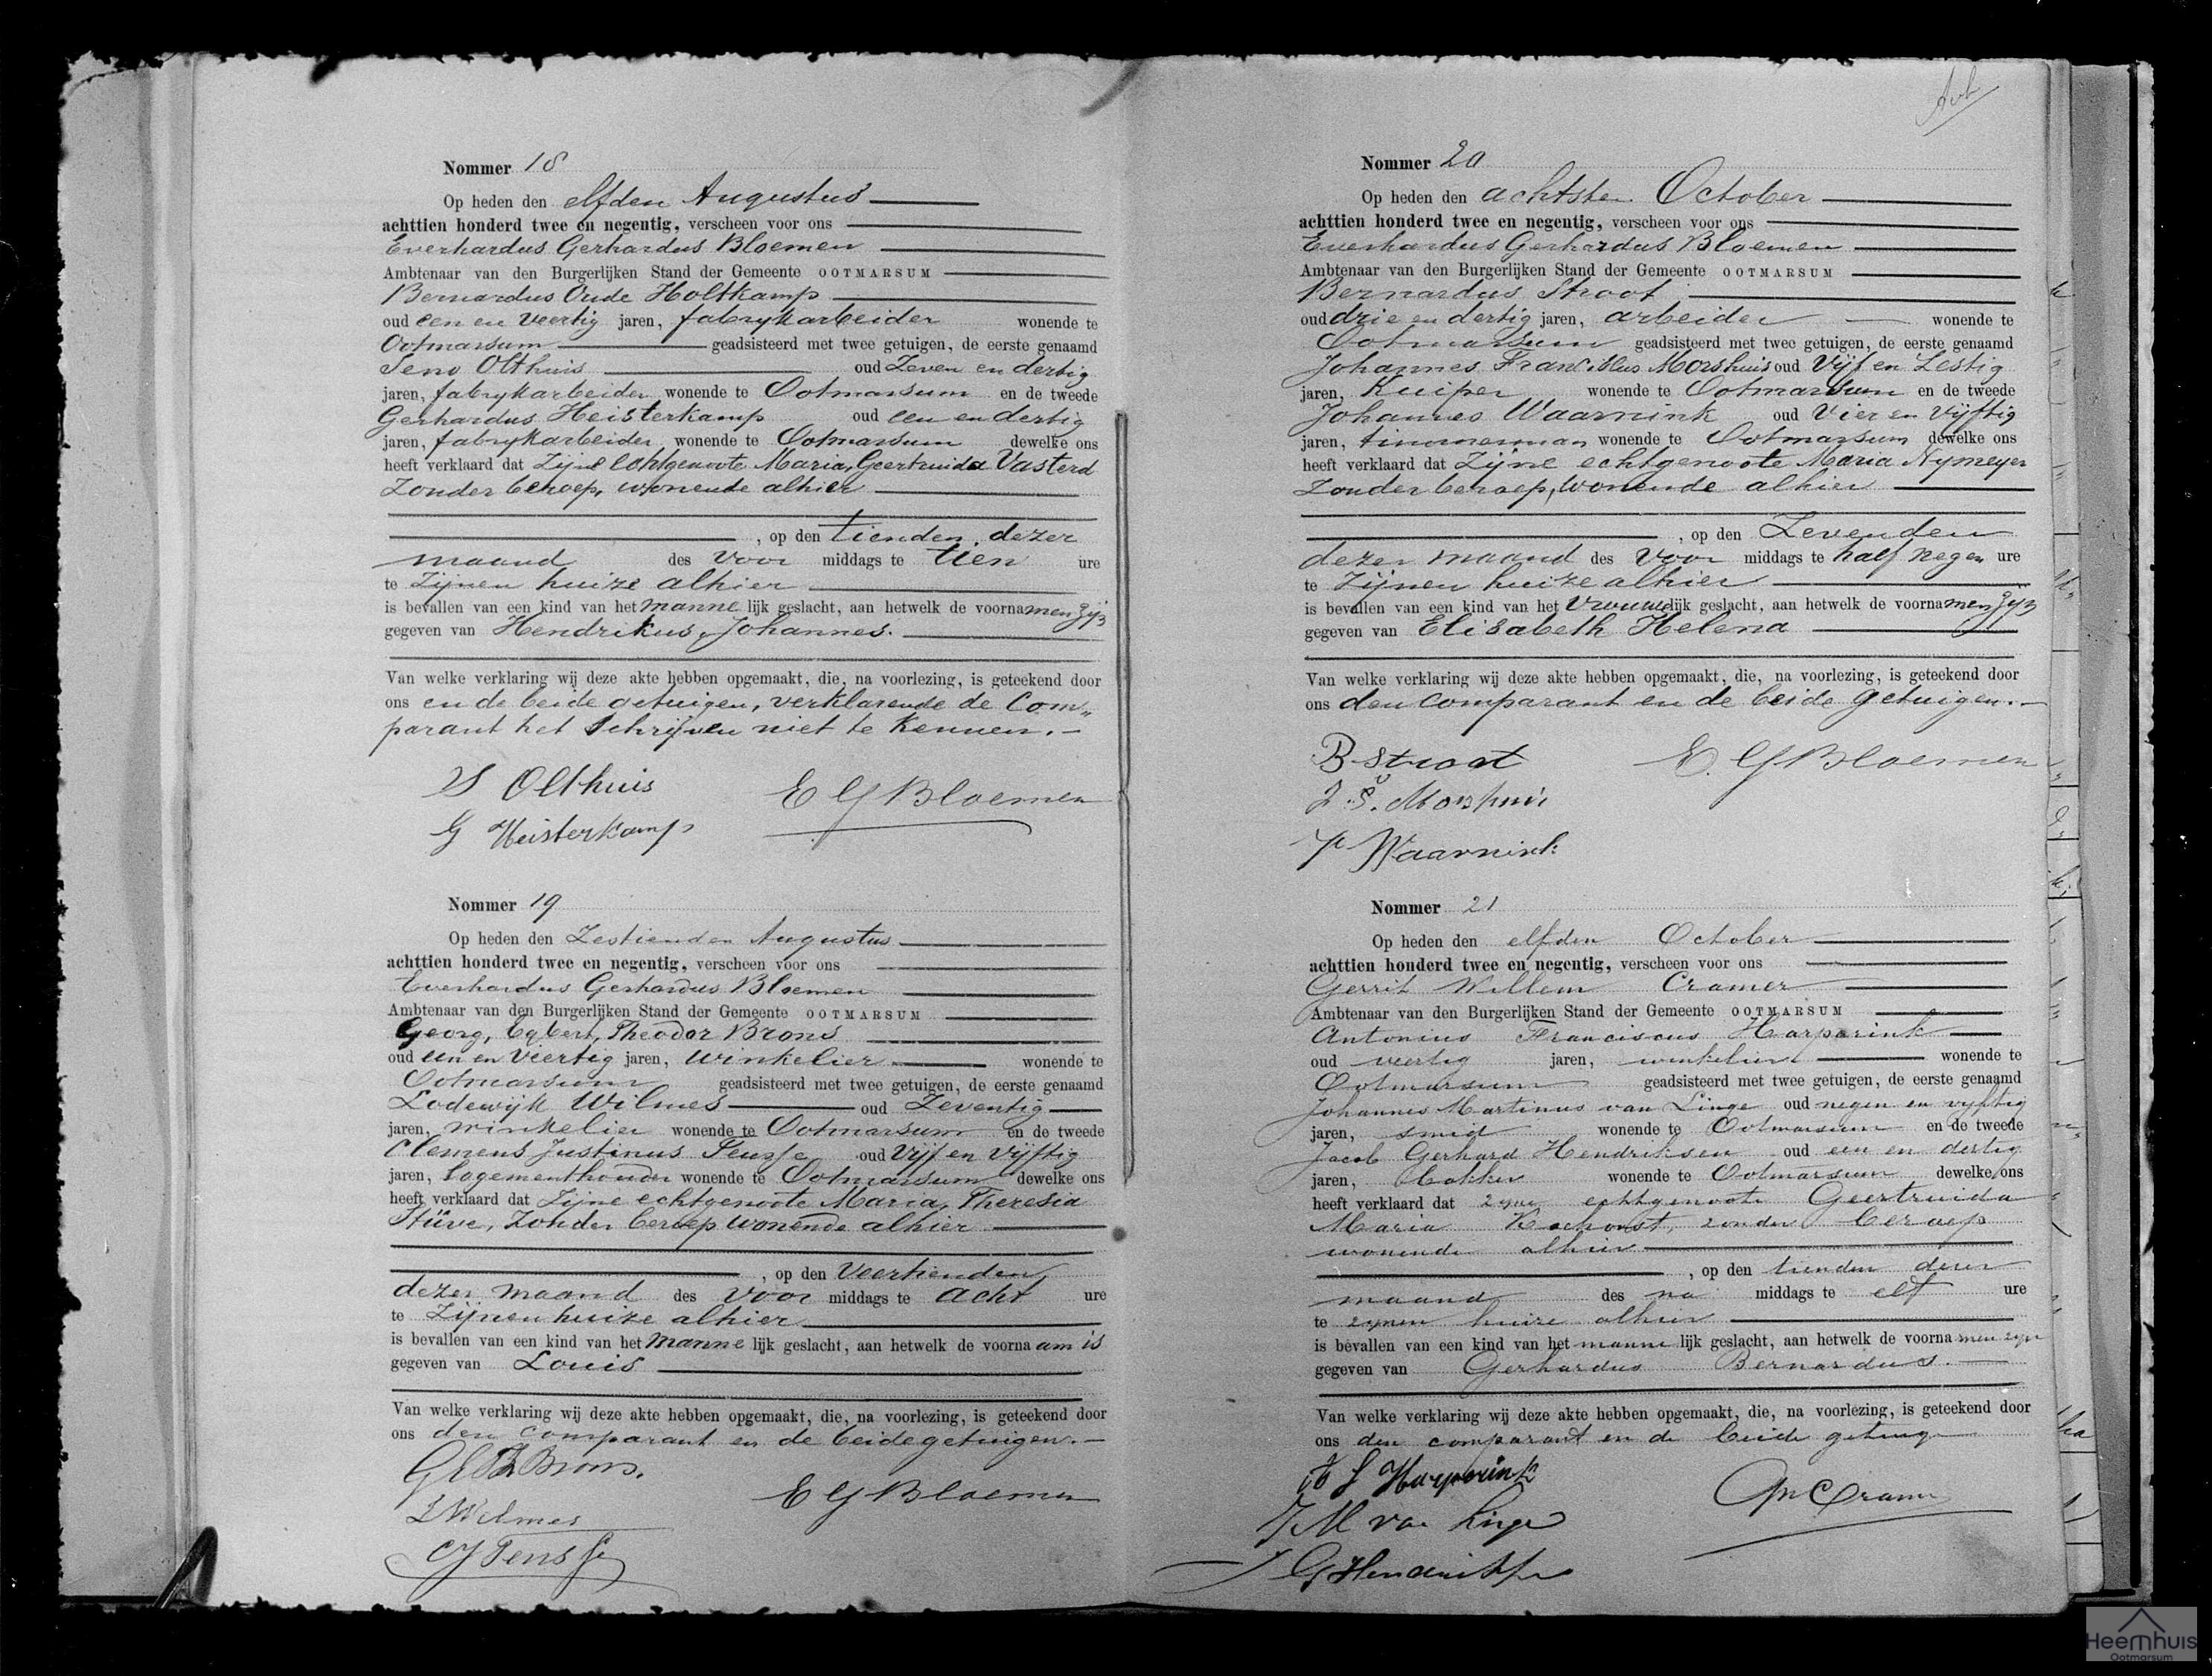 Nommer 18
Op heden den elfden Augustus
achttien honderd twee en negentig, verscheen voor ons
Everhardus Gerhardus Bloemen
Ambtenaar van den Burgerlijken Stand der Gemeente OOTMARSUM
Bernardus Oude Holtkamp
oud een en Veertig jaren, fabrykarbeider wonende te
Ootmarsum geadsisteerd met twee getuigen, de eerste genaamd
Seno Olthuis oud Zeven en dertig
jaren, fabrykarbeider wonende te Ootmarsum en de tweede
Gerhardus Heisterkamp oud een en dertig
jaren, fabrykarbeider wonende te Ootmarsum dewelke ons
heeft verklaard dat Zijne echtgenoote Maria, Geertruida Vasterd
Zonder beroep, wonende alhier
, op den tienden dezer
maand des voor middags te tien ure
te Zijnen huize alhier
is bevallen van een kind van het manne lijk geslacht, aan hetwelk de voornamen zijn
gegeven van Hendrikus, Johannes.
Van welke verklaring wij deze akte hebben opgemaakt, die, na voorlezing, is geteekend door
ons en de beide getuigen, verklarende de Com„
parant het Schrijven niet te Kennen.
S Olthuis
E G Bloemen
G Heisterkamp
Nommer 19
Op heden den Zestienden Augustus
achttien honderd twee en negentig, verscheen voor ons
Everhardus Gerhardus Bloemen
Ambtenaar van den Burgerlijken Stand der Gemeente OOTMARSUM
Georg, Egbert, Theodor Brons
oud een en Viertig jaren, winkelier wonende te
Ootmarsum geadsisteerd met twee getuigen, de eerste genaamd
Lodewijk Wilmes oud Zeventig
jaren, winkelier wonende te Ootmarsum en de tweede
Clemens Justinus oud Vijf en Vijftig
jaren, logementhouder wonende te Ootmarsum dewelke ons
heeft verklaard dat Zijne echtgenoote Maria, Theresia
Stüve, Zonder beroep wonende alhier
, op den Veertienden
dezer maand des voor middags te acht ure
te Zijnen huize alhier
is bevallen van een kind van het manne lijk geslacht, aan hetwelk de voorna am is
gegeven van Louis
Van welke verklaring wij deze akte hebben opgemaakt, die, na voorlezing, is geteekend door
ons den comparant en de beide getuigen.
Brons.
E G Bloemen
L Wilmes
Nommer 20
Op heden den achtsten October
achttien honderd twee en negentig, verscheen voor ons
Everhardus Gerhardus Bloemen
Ambtenaar van den Burgerlijken Stand der Gemeente OOTMARSUM
Bernardus Stroot
oud drie en dertig jaren, arbeider wonende te
Ootmarsum geadsisteerd met twee getuigen, de eerste genaamd
Johannes Morshuis oud Vijf en Zestig
jaren, Kuiper wonende te Ootmarsum en de tweede
Johannes Waarnink oud Vier en Vijftig
jaren, timmerman wonende te Ootmarsum dewelke ons
heeft verklaard dat Zijne echtgenoote Maria Nymeyer
Zonder beroep, wonende alhier
, op den Zevenden
dezer maand des voor middags te half negen ure
te Zijnen huize alhier
is bevallen van een kind van het vrouwelijk geslacht, aan hetwelk de voornamen zijn
gegeven van Elisabeth Helena
Van welke verklaring wij deze akte hebben opgemaakt, die, na voorlezing, is geteekend door
ons den comparant en de beide getuigen.
B Stroot
E. G Bloemen
Morshuis
Waarnink
Nommer 21
Op heden den elfden October
achttien honderd twee en negentig, verscheen voor ons
Gerrit Willem Cramer
Ambtenaar van den Burgerlijken Stand der Gemeente OOTMARSUM
Antonius Franciscus Harperink
oud veertig jaren, winkelier wonende te
Ootmarsum geadsisteerd met twee getuigen, de eerste genaamd
Johannes Martinus van Linge oud negen en vyftig
jaren, smid wonende te Ootmarsum en de tweede
Jacob Gerhard Hendriksen oud een en dertig
jaren, bakker wonende te Ootmarsum dewelke ons
heeft verklaard dat zyne echtgenoote Geertruida
Maria Kockorst, zonder beroep
wonende alhier
, op den tienden dezer
maand des na middags te elf ure
te zynen huize alhier
is bevallen van een kind van het manne lijk geslacht, aan hetwelk de voorna men zyn
gegeven van Gerhardus Bernardus.
Van welke verklaring wij deze akte hebben opgemaakt, die, na voorlezing, is geteekend door
ons den comparant en de beide getuige
Harperink
GW Cramer
J M van Linge
J G Hendriksen
Heemhuis
Ootmarsum